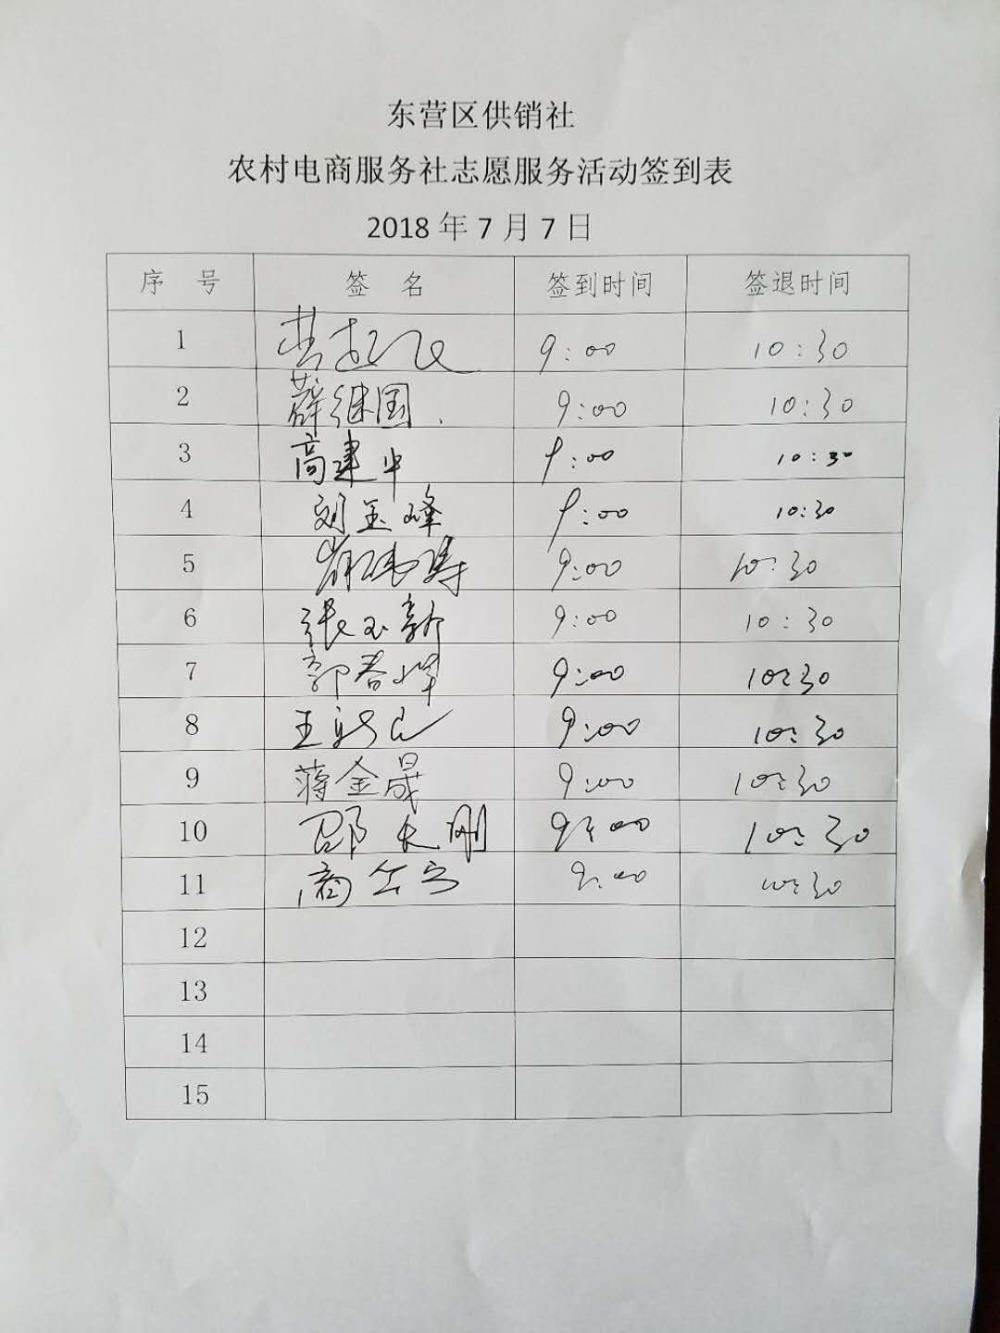 东营区供销社
农村电商服务社志愿服务活动签到表
2018年7月7日
序 号 签 名 签到时间 签退时间
1 9:00 10:30
2 薛继国. 9:00 10:30
3 高建中 9:00 10:30
4 刘玉峰 9:00 10:30
5 9:00 10:30
6 张玉新 9:00 10:30
7 郭春晖 9:00 10:30
8 王 9:00 10:30
9 蒋金晟 9:00 10:30
10 邵大刚 9:00 10:30
11 商 9:00 10:30
12
13
14
15